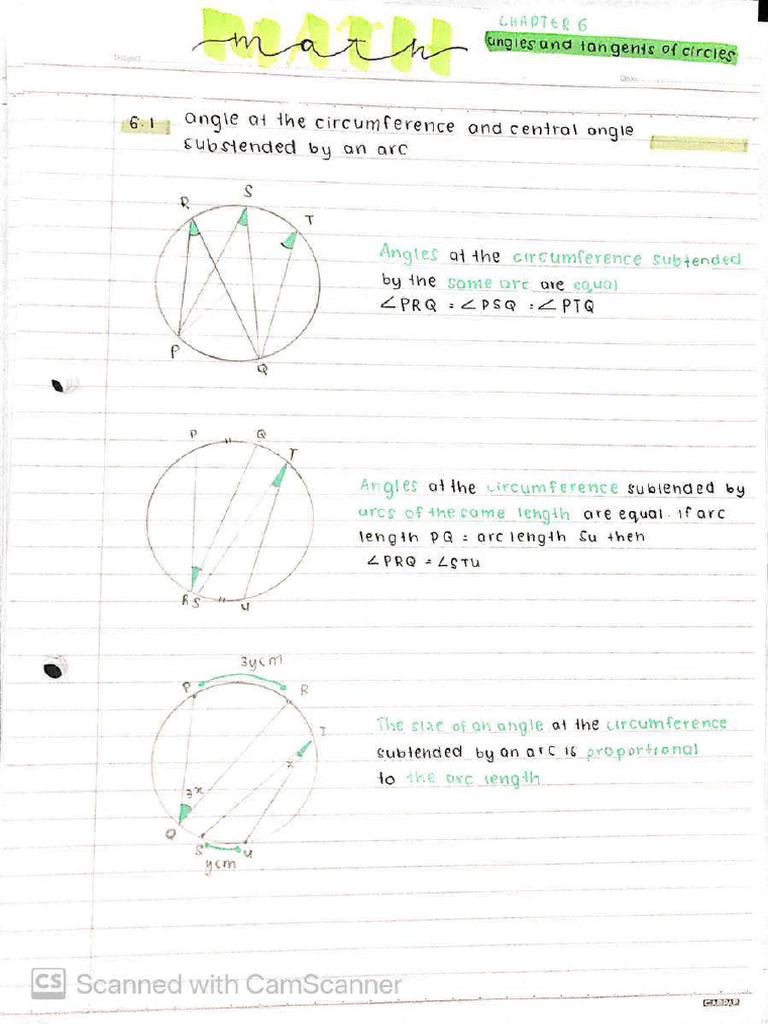 MATH
math
CHAPTER 6
angles and tangents of circles
Subject
Date
6.1 angle at the circumference and central angle
substended by an arc
R
S
T
P
Q
Angles at the circumference subtended
by the same arc are equal
∠PRQ = ∠PSQ = ∠PTQ
P
Q
T
RS
U
Angles at the circumference sublended by
arcs of the same length are equal. if arc
length PQ = arc length SU then
∠PRQ = ∠STU
3ycm
P
R
T
x
3x
Q
S
U
ycm
The size of an angle at the circumference
subtended by an arc is proportional
to the arc length
CS Scanned with CamScanner
CAMPAP